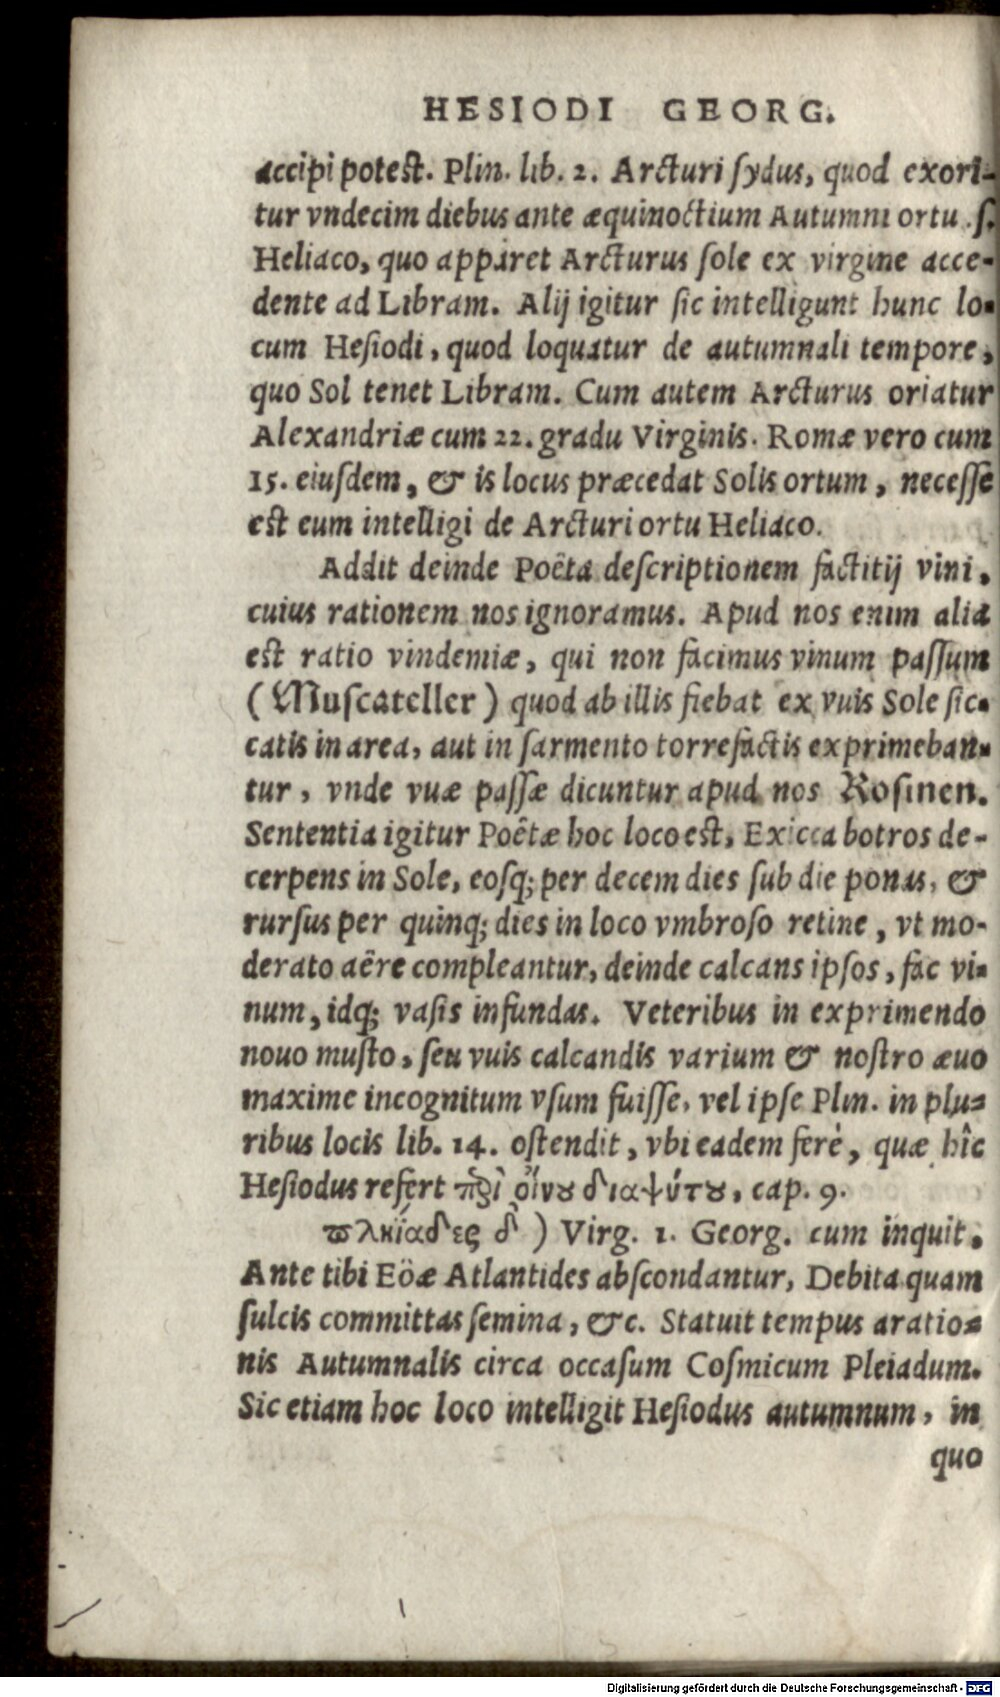 HESIODI GEORG.
accipi potest. Plin. lib. 2. Arcturi ſydus, quod exori-
tur vndecim diebus ante æquinoctium Autumni ortu .ſ.
Heliaco, quo apparet Arcturus ſole ex virgine acce-
dente ad Libram. Alij igitur ſic intelligunt hunc lo-
cum Heſiodi, quod loquatur de autumnali tempore,
quo Sol tenet Libram. Cum autem Arcturus oriatur
Alexandriæ cum 22. gradu Virginis. Romæ vero cum
15. eiuſdem, & is locus præcedat Solis ortum, neceſſe
est eum intelligi de Arcturi ortu Heliaco.
Addit deinde Poëta deſcriptionem factitij vini.
cuius rationem nos ignoramus. Apud nos enim alia
est ratio vindemiæ, qui non facimus vinum paſſum
(Muſcateller) quod ab illis fiebat ex vuis Sole ſic-
catis in area, aut in ſarmento torrefactis exprimeban-
tur, vnde vuæ paſſæ dicuntur apud nos Roſinen.
Sententia igitur Poëtæ hoc loco est, Exicca botros de-
cerpens in Sole, eoſq; per decem dies ſub die ponas, &
rurſus per quinq; dies in loco vmbroſo retine, vt mo-
derato aëre compleantur, deinde calcans ipſos, fac vi-
num, idq; vaſis infundas. Veteribus in exprimendo
nouo muſto, ſeu vuis calcandis varium & noſtro æuo
maxime incognitum vſum fuiſſe, vel ipſe Plin. in plu-
ribus locis lib. 14. oſtendit, vbi eadem ferè, quæ hîc
Heſiodus refert πὲρὶ οἴνου διαψύτου, cap. 9.
πλκίαδες δ') Virg. 1. Georg. cum inquit.
Ante tibi Eöæ Atlantides abſcondantur, Debita quam
ſulcis committas ſemina, &c. Statuit tempus aratio-
nis Autumnalis circa occaſum Coſmicum Pleiadum.
Sic etiam hoc loco intelligit Heſiodus autumnum, in
quo
Digitalisierung gefördert durch die Deutsche Forschungsgemeinschaft - DFG